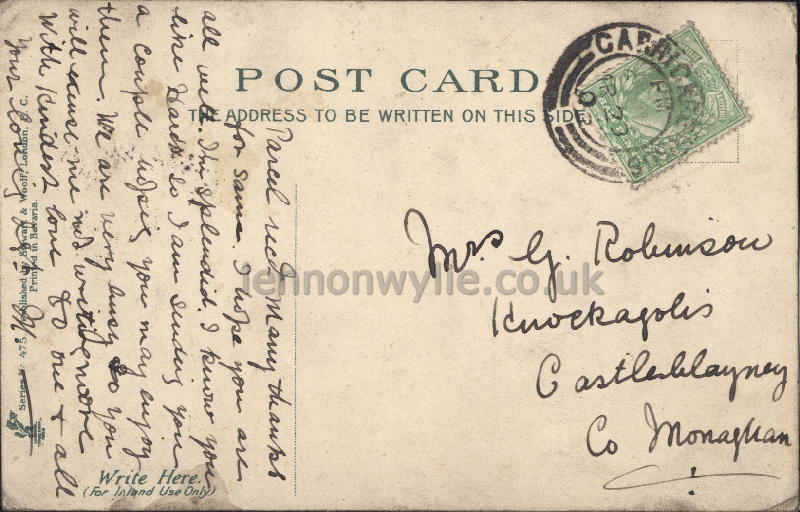 POST CARD
THE ADDRESS TO BE WRITTEN ON THIS SIDE
Parcel recd. Many thanks
for same. I hope you are
all well. I'm splendid. I know you
like Hards so I am sending you
a couple hoping you may enjoy
them. We are very busy so you
will excuse me not writing more
With kindest love to one & all
Your loving
M.
Mrs G. Robinson
Knockagolis
Castleblayney
Co Monaghan
Write Here.
(For Inland Use Only)
Series No 475. Published by Stewart & Woolf, London, E. C.
Printed in Bavaria.
lennonwylie.co.uk